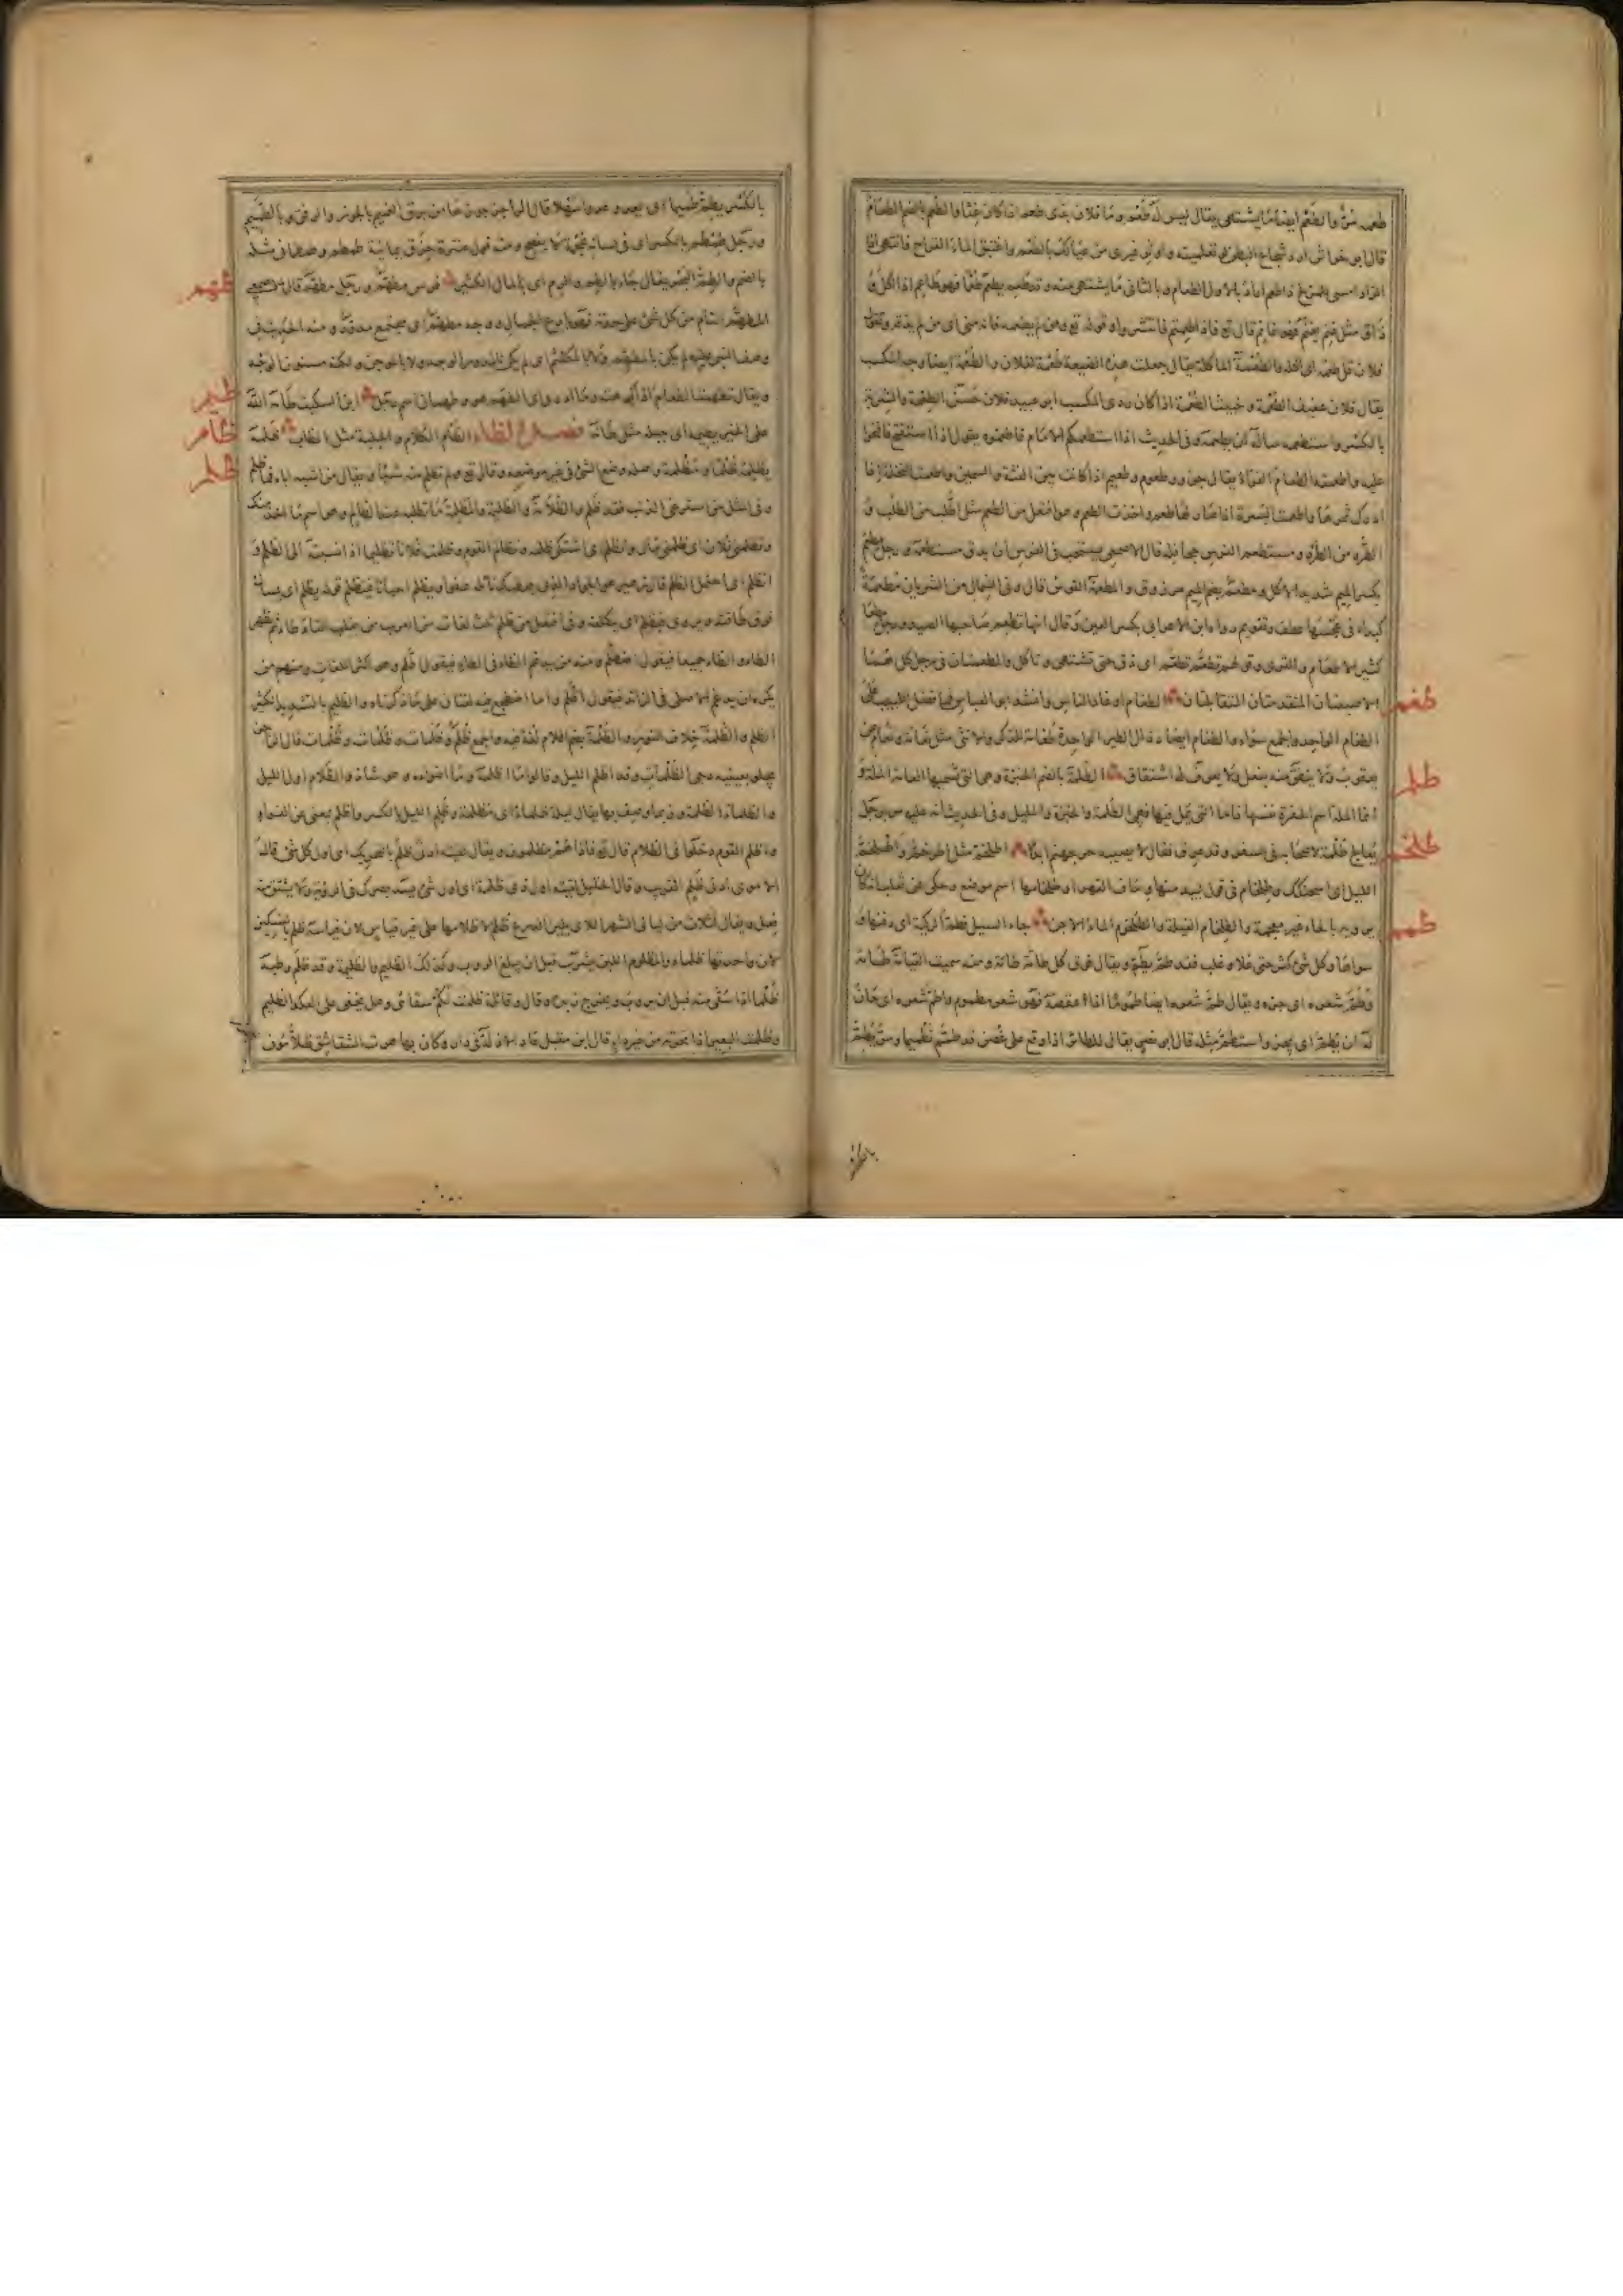 طعمه مرٌّ والطَّعْمُ ايضا مَا يشتهى يقال ليس له طَعْم وما فلان بذى طعم اذا كان غثًّا والطُعم بالضم الطعَامُ
قال ابو خراش ارد شجاع البطن لو تعلمينه واوثر غيرى من عيالك بالطُعم واغتبق الماءَ القراح فانتهى اذا
الزاد امسى للمزلج ذا طعم اراد بالاول الطعام وبالثانى مَا يشتهى منه وقد طعِم يطعَم طُعْمًا فهو طاعِم اذا اكل او
ذاق مثل غنِم يغنَم فهو غانِم قال تع فاذا طعمتم فانتشروا وقوله تع ومن لم يطعمه فانه منى اى من لم يذقه وتقول
فلان قلّ طعمُه اى اكله والطُعْمَة المأكلة يقال جعلت هذه الضيعة طُعْمة لفلان والطُعْمة ايضا وجه المكسب
يقال فلان عفيف الطُعْمة وخبيث الطُعْمة اذا كان ردى المكسب ابو عبيد فلان حَسَن الطِعْمَة والشِربة
بالكسر واستطعمه سأله ان يطعمه وفى الحديث اذا استطعمكم الامام فاطعموه يقول اذا استفتح فافتحوا
عليه واطعمته الطعام الفرّاء يقال جزور طعوم وطعيم اذا كانت بين الغثّة والسمين واطعمت النخلة اذا
ادرك ثمرها واطعمت البُسرة اذا صار لها طعم واخذت الطعم وهو افتعل من الطعم مثل اطّلب من الطلب و
اطّرد من الطرد ومستطعم الفرس جحافله قال الاصمعى يستحب فى الفرس ان يدق مستطعمه ورجل مِطعم
بكسر الميم شديد الاكل ومُطعَم بضم الميم مرزوق والمطعمة القوس قال وفى الشمال من الشريان مُطعِمَة
كبداء فى عجسها عطف وتقويم رواه ابن الاعرابى بكسر العين وقال انها تطعم صَاحبها الصيد ورجل مِطعَام
كثير الاطعام والقرى وقولهم تطعَّم تَطْعَم اى ذق حتى تشتهى وتاكل والمطعمتان فى رجل كل طائر هما
الاصبعان المتقدمتان المتقابلتان الطغام اوغاد الناس وانشد ابو العباس فما فضل اللبيب على
طغم
الطغام الواحد والجمع سواء والطغام ايضا رذال الطير الواحدة طغامة للذكر والانثى مثل نعامة ونعام عن
يعقوب وَلا ينطق منه بفعل وَلا يعرف له اشتقاق الطُلْمة بالضم الخبزة وهى التى تسميها العامة الملّة و
طلم
انما الملة اسم الحفرة نفسها فاما التى تُمَلّ فيها فهى الطُلمة والخبزة والمليل وفى الحديث انه عليه س مرّ برجل
يُعالج طُلمة لاصحابه فى سفر وقد عرق فقال لا يصيبه حر جهنم ابدًا اطلخمّ مثل اطرخمّ واطلخمّ
طلخم
الليل اى اسحنكك وطِلخام فى قول لبيد منها وحاف القهر او طلخامها اسم موضع وحكى عن ثعلب انه كان
يرويه بالحاء غير معجمة والطِلخام الفيلة والمطلخم الماء الاجن جاء السيل فطمّ الركية اى دفنها و
طمم
سواها وكل شئ كثر حتى علا وغلب فقد طمّ يطِمّ ويقال فوق كل طامّة طامّة ومنه سميت القيامة طامّة
وطَمَّ شعره اى جزه ويقال طمّ شعره ايضا طمومًا اذا عقصه فهو شعر مطموم واطمّ شعره اى حان
له ان يُطَمّ اى يجز واستطمّ مثله قال ابو نصر يقال للطائر اذا وقع على غصن قد طمّم تطميما ومرّ يَطِمّ
بالكسر
بالكسر يطِمّ طميما اى يعدو عدوا سهلا قال الراجز
ورجل طِمطِم بالكسر اى فى لسانه عُجمة لا يفصح ومنه قول عنترة حِزَق يمانية لاعجم طمطم وطمطمانى مثله
بالضم والطِمّ البحر يقال جاء بالطِم والرِم اى بالمال الكثير فرس مطهّم ورجل مطهّم قال الاصمعى
طهم
المطهّم التام من كل شئ على حدته فهو بارع الجمال ووجه مطهّم اى مجتمع مدوّر ومنه الحديث فى
وصف النبى عليه لم يكن بالمطهّم ولا بالمكلثم اى لم يكن بالمدور الوجه ولا بالموجن ولكنه مسنون الوجه
ابن السكيت طامه الله
طيم
على الخير يطيمه اى جبله مثل طانه فصل الظاء الظأم الكلام والجلبة مثل الظاب ظلمه
ظأم
يظلمه ظُلما ومَظلمة واصله وضع الشئ فى غير موضعه وقال تع ولم تظلم منه شيئا ويقال من اشبه اباه فما ظلم
ظلم
وفى المثل من استرعى الذئب فقد ظلم والظُلامة والظليمة والمظلِمة مَا تطلبه عند الظالم وهو اسم مَا اخذ منك
وتظلمنى فلان اى ظلمنى مالى وتظلم منه اى اشتكى ظلمه وتظالم القوم وظلمت فلانا تظليما اذا نسبته الى الظلم و
انظلم اى احتمل الظلم قال زهير هو الجواد الذى يعطيك نائله عفوا ويظلم احيانا فينظلم قوله يظلم اى يسأل
فوق طاقته ويروى فيظّلم اى يتكلفه وفى افتعل من ظلم ثلث لغات من العرب من يقلب التاء طاء ثم يظهر
الطاء والظاء جميعا فيقول اظطلم ومنه من يدغم الظاء فى الطاء فيقول اطّلم وهو اكثر اللغات ومنهم من
يكره ان يدغم الاصلى فى الزائد فيقول اظّلم واما اضطجع ففيه لغتان على مَا ذكرناه والظليم بالتشديد الكثير
الظلم والظُلمة خلاف النور والظُلُمة بضم اللام لغة فيه والجمع ظُلَم وظُلُمات وظُلَمات وظُلْمات قال الراجز
يجلو بعينيه دجى الظلمات وقد اظلم الليل وقالوا ما اظلمه وما اضوءه وهو شاذ والظلام اول الليل
والظلماء الظلمة وربما وصف بها يقال ليلة ظلماء اى مظلمة وظلِم الليل بالكسر واظلم بمعنى عن الفراء
واظلم القوم دخلوا فى الظلام قال تع فاذا هم مظلمون ويقال لقيته ادنى ظلم بالتحريك اى اول كل شئ قال
الاموى ادنى ظلم القريب وقال الخليل لقيته اول ذى ظلمة اى اول شئ يسد بصرك فى الرؤية ولا يشتق منه
فعل ويقال لثلاث من ليالى الشهر اللاى يلين الدرع ظُلَم لاظلامها على غير قياس لان قياسه ظُلْم بالتسكين
لان واحدتها ظلماء والمظلوم اللبن يشرب قبل ان يبلغ الروب وكذلك الظليم والظليمة وقد ظلم وطبه
ظُلما اذا سقى منه قبل ان يروب ويخرج زبده وقال وقائلة ظلمت لكم سقائى وهل يخفى على العكد الظليم
وظلمت البعير اذا نحرته من غير داء قال ابن مقبل عاد الاذلة فى دار وكان بها هرت الشقاشق ظلامون